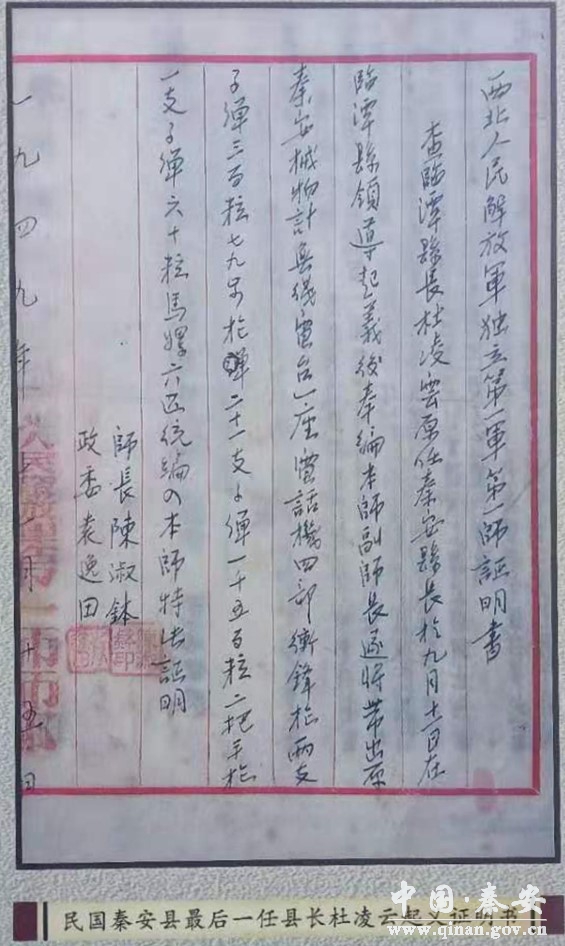 西北人民解放軍独立第一軍第一師証明書
查臨潭縣長杜凌雲原任秦安縣長於九月十一日在
臨潭縣領導起義後奉編本師副師長遂將帶出原
秦安械物計無线電台一座電話機四部衝鋒枪两支
子弹三百粒七九步枪二十一支子弹一千五百粒二把手枪
一支子弹六十粒馬騾六匹統編入本師特此証明
師長陳淑鉢
政委袁逸田
一九四九年 月十五日
民国秦安县最后一任县长杜凌云起义证明书
中国·秦安
www.qinan.gov.cn